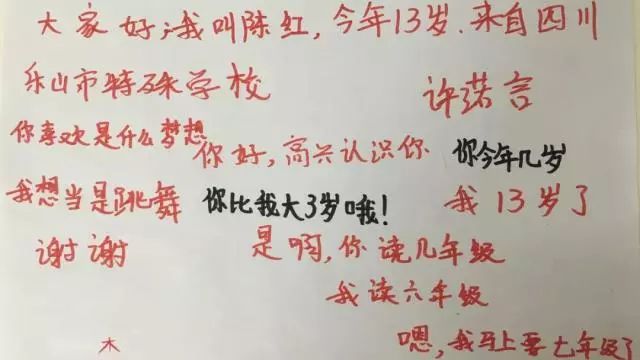 大家好,我叫陈红,今年13岁.来自四川
乐山市特殊学校
许诺言
你喜欢是什么梦想
你好,高兴认识你
你今年几岁
我想当是跳舞
你比我大3岁哦!
我13岁了
谢谢
是啊,你读几年级
我读六年级
木
嗯,我马上要七年级了